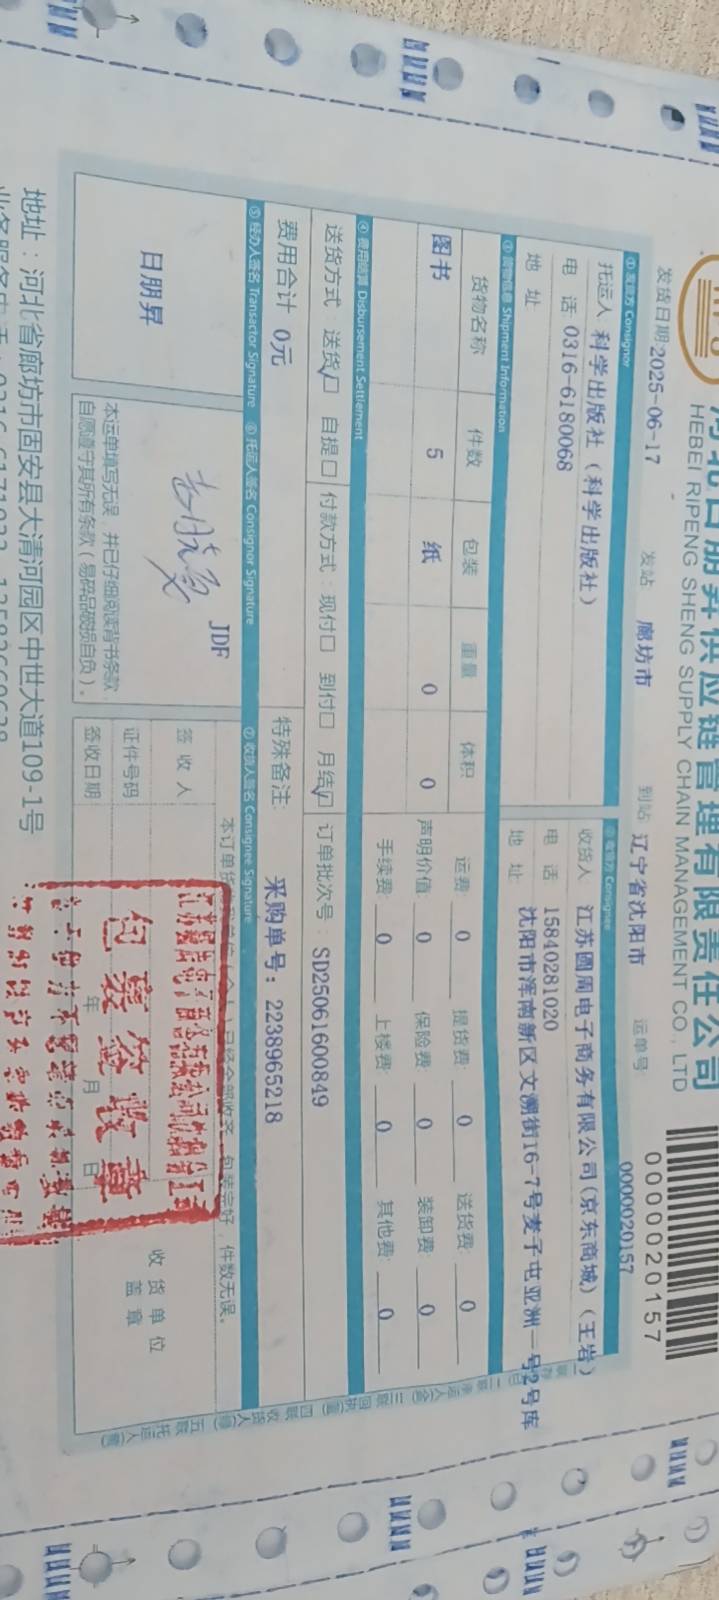 河北日朋昇供应链管理有限责任公司
HEBEI RIPENG SHENG SUPPLY CHAIN MANAGEMENT CO., LTD
0000020157
发货日期:2025-06-17 发站 廊坊市 到站 辽宁省沈阳市 运单号 0000020157
① 发货方 Consignor ② 收货方 Consignee
托运人 科学出版社(科学出版社) 收货人 江苏圆周电子商务有限公司(京东商城)(王岩)
电 话 0316-6180068 电 话 15840281020
地 址 地 址 沈阳市浑南新区文溯街16-7号麦子屯亚洲一号2号库
③ 货物信息 Shipment Information
货物名称 件数 包装 重量 体积 运费: 0 提货费: 0 送货费: 0
图书 5 纸 0 0 声明价值: 0 保险费: 0 装卸费: 0
手续费: 0 上楼费: 0 其他费: 0
④ 费用结算 Disbursement Settlement
送货方式: 送货☑ 自提□ 付款方式: 现付□ 到付□ 月结☑ 订单批次号: SD25061600849
费用合计 0元 特殊备注: 采购单号: 2238965218
⑤ 经办人签名 Transactor Signature ⑥ 托运人签名 Consignor Signature ⑦ 收货人签名 Consignee Signature
日朋昇
JDF
本运单填写无误,并已仔细阅读背书条款,
自愿遵守其所有条款(易碎品破损自负)。
本订单货 已经全部收齐,包装完好,件数无误。
签 收 人
证件号码
签收日期 年 月 日
收货单位
盖 章
包装签收章
地址:河北省廊坊市固安县大清河园区中世大道109-1号